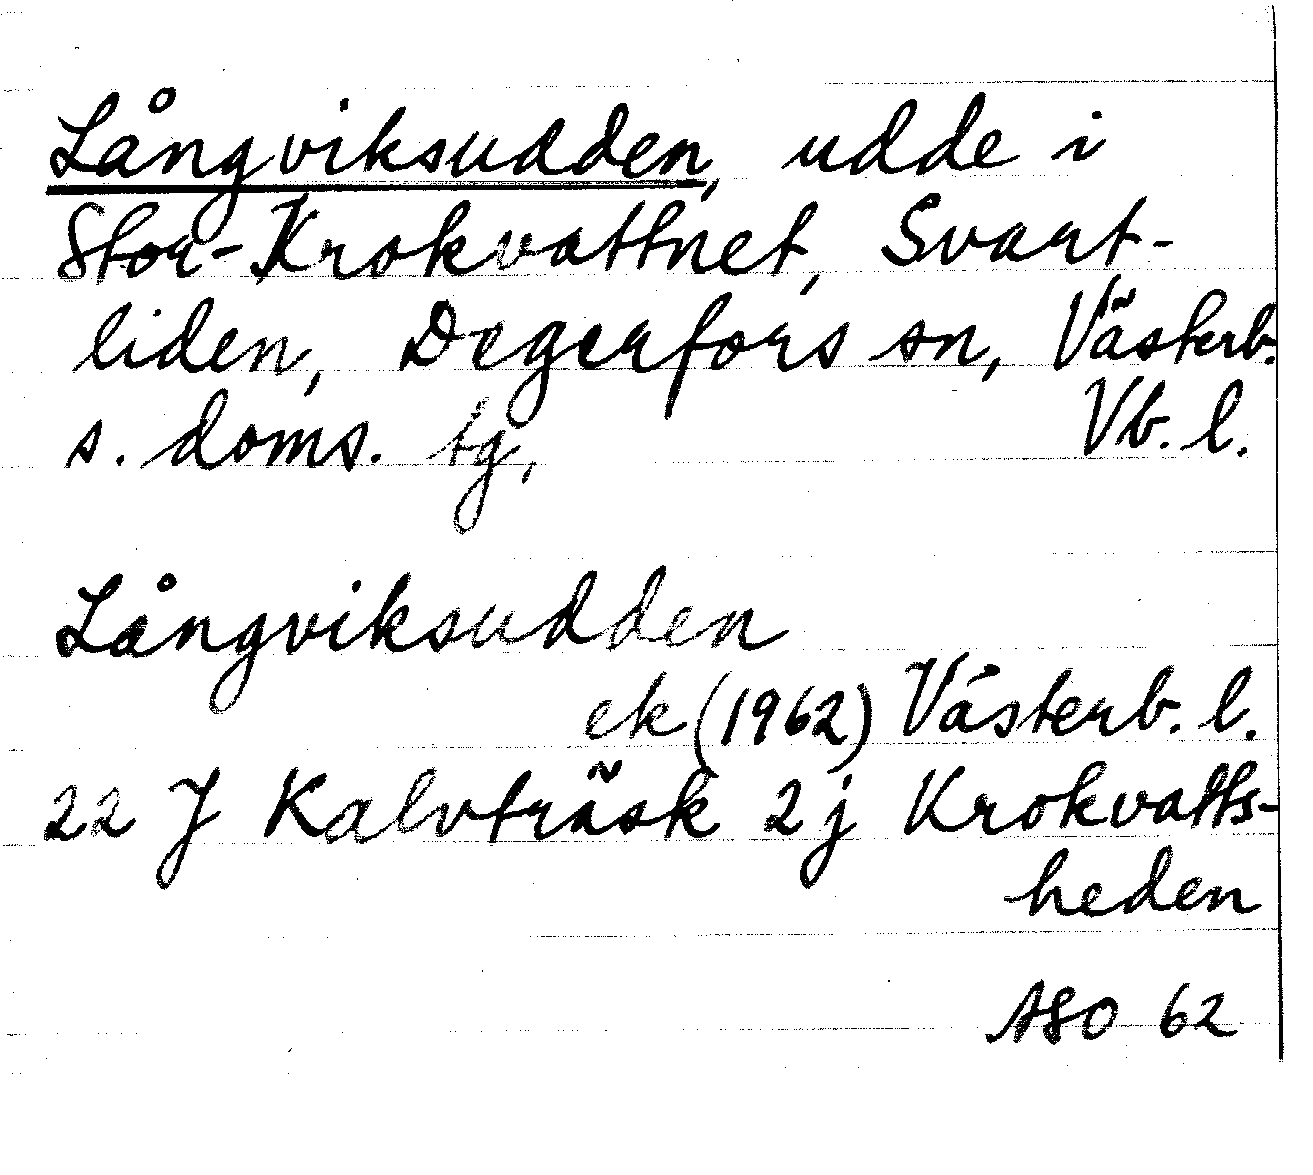 Långviksudden, udde i
Stor-Krokvattnet, Svart-
liden, Degerfors sn, Västerb.
s. doms. tg, Vb. l.
Långviksudden
ek (1962) Västerb. l.
22 J Kalvträsk 2j Krokvatts-
heden
ASO 62